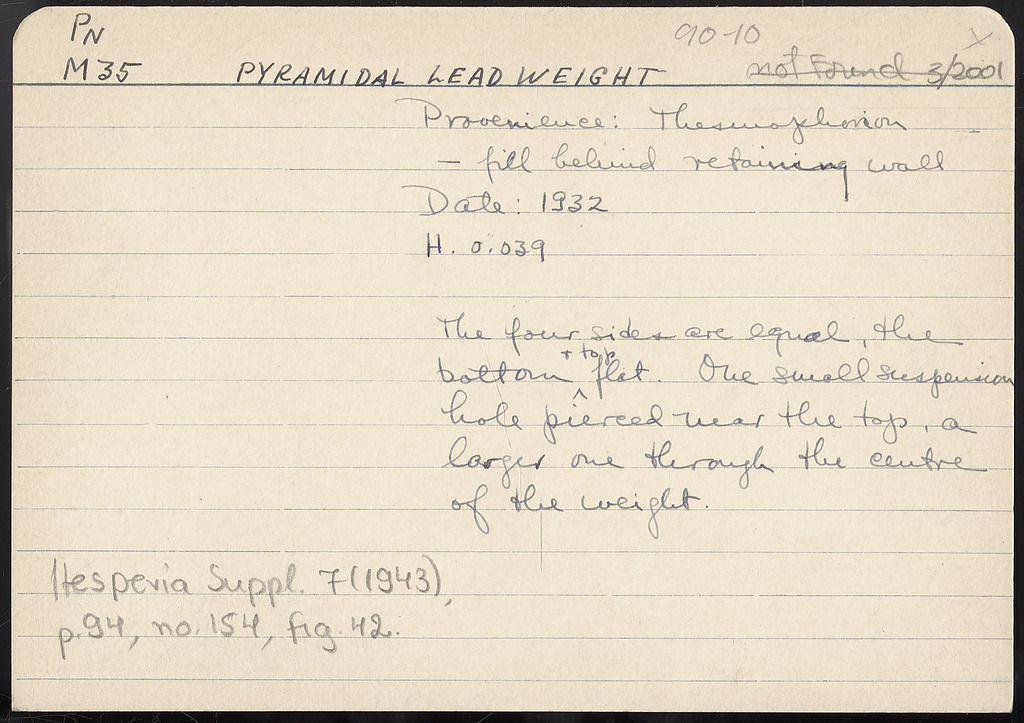 PN
90-10 X
M35 PYRAMIDAL LEAD WEIGHT not Found 3/2001
Provenience: Thesmophorion
– fill behind retaining wall
Date: 1932
H. 0.039
The four sides are equal, the
bottom + top flat. One small suspension
hole pierced near the top, a
larger one through the centre
of the weight.
Hesperia Suppl. 7 (1943),
p.94, no. 154, fig. 42.